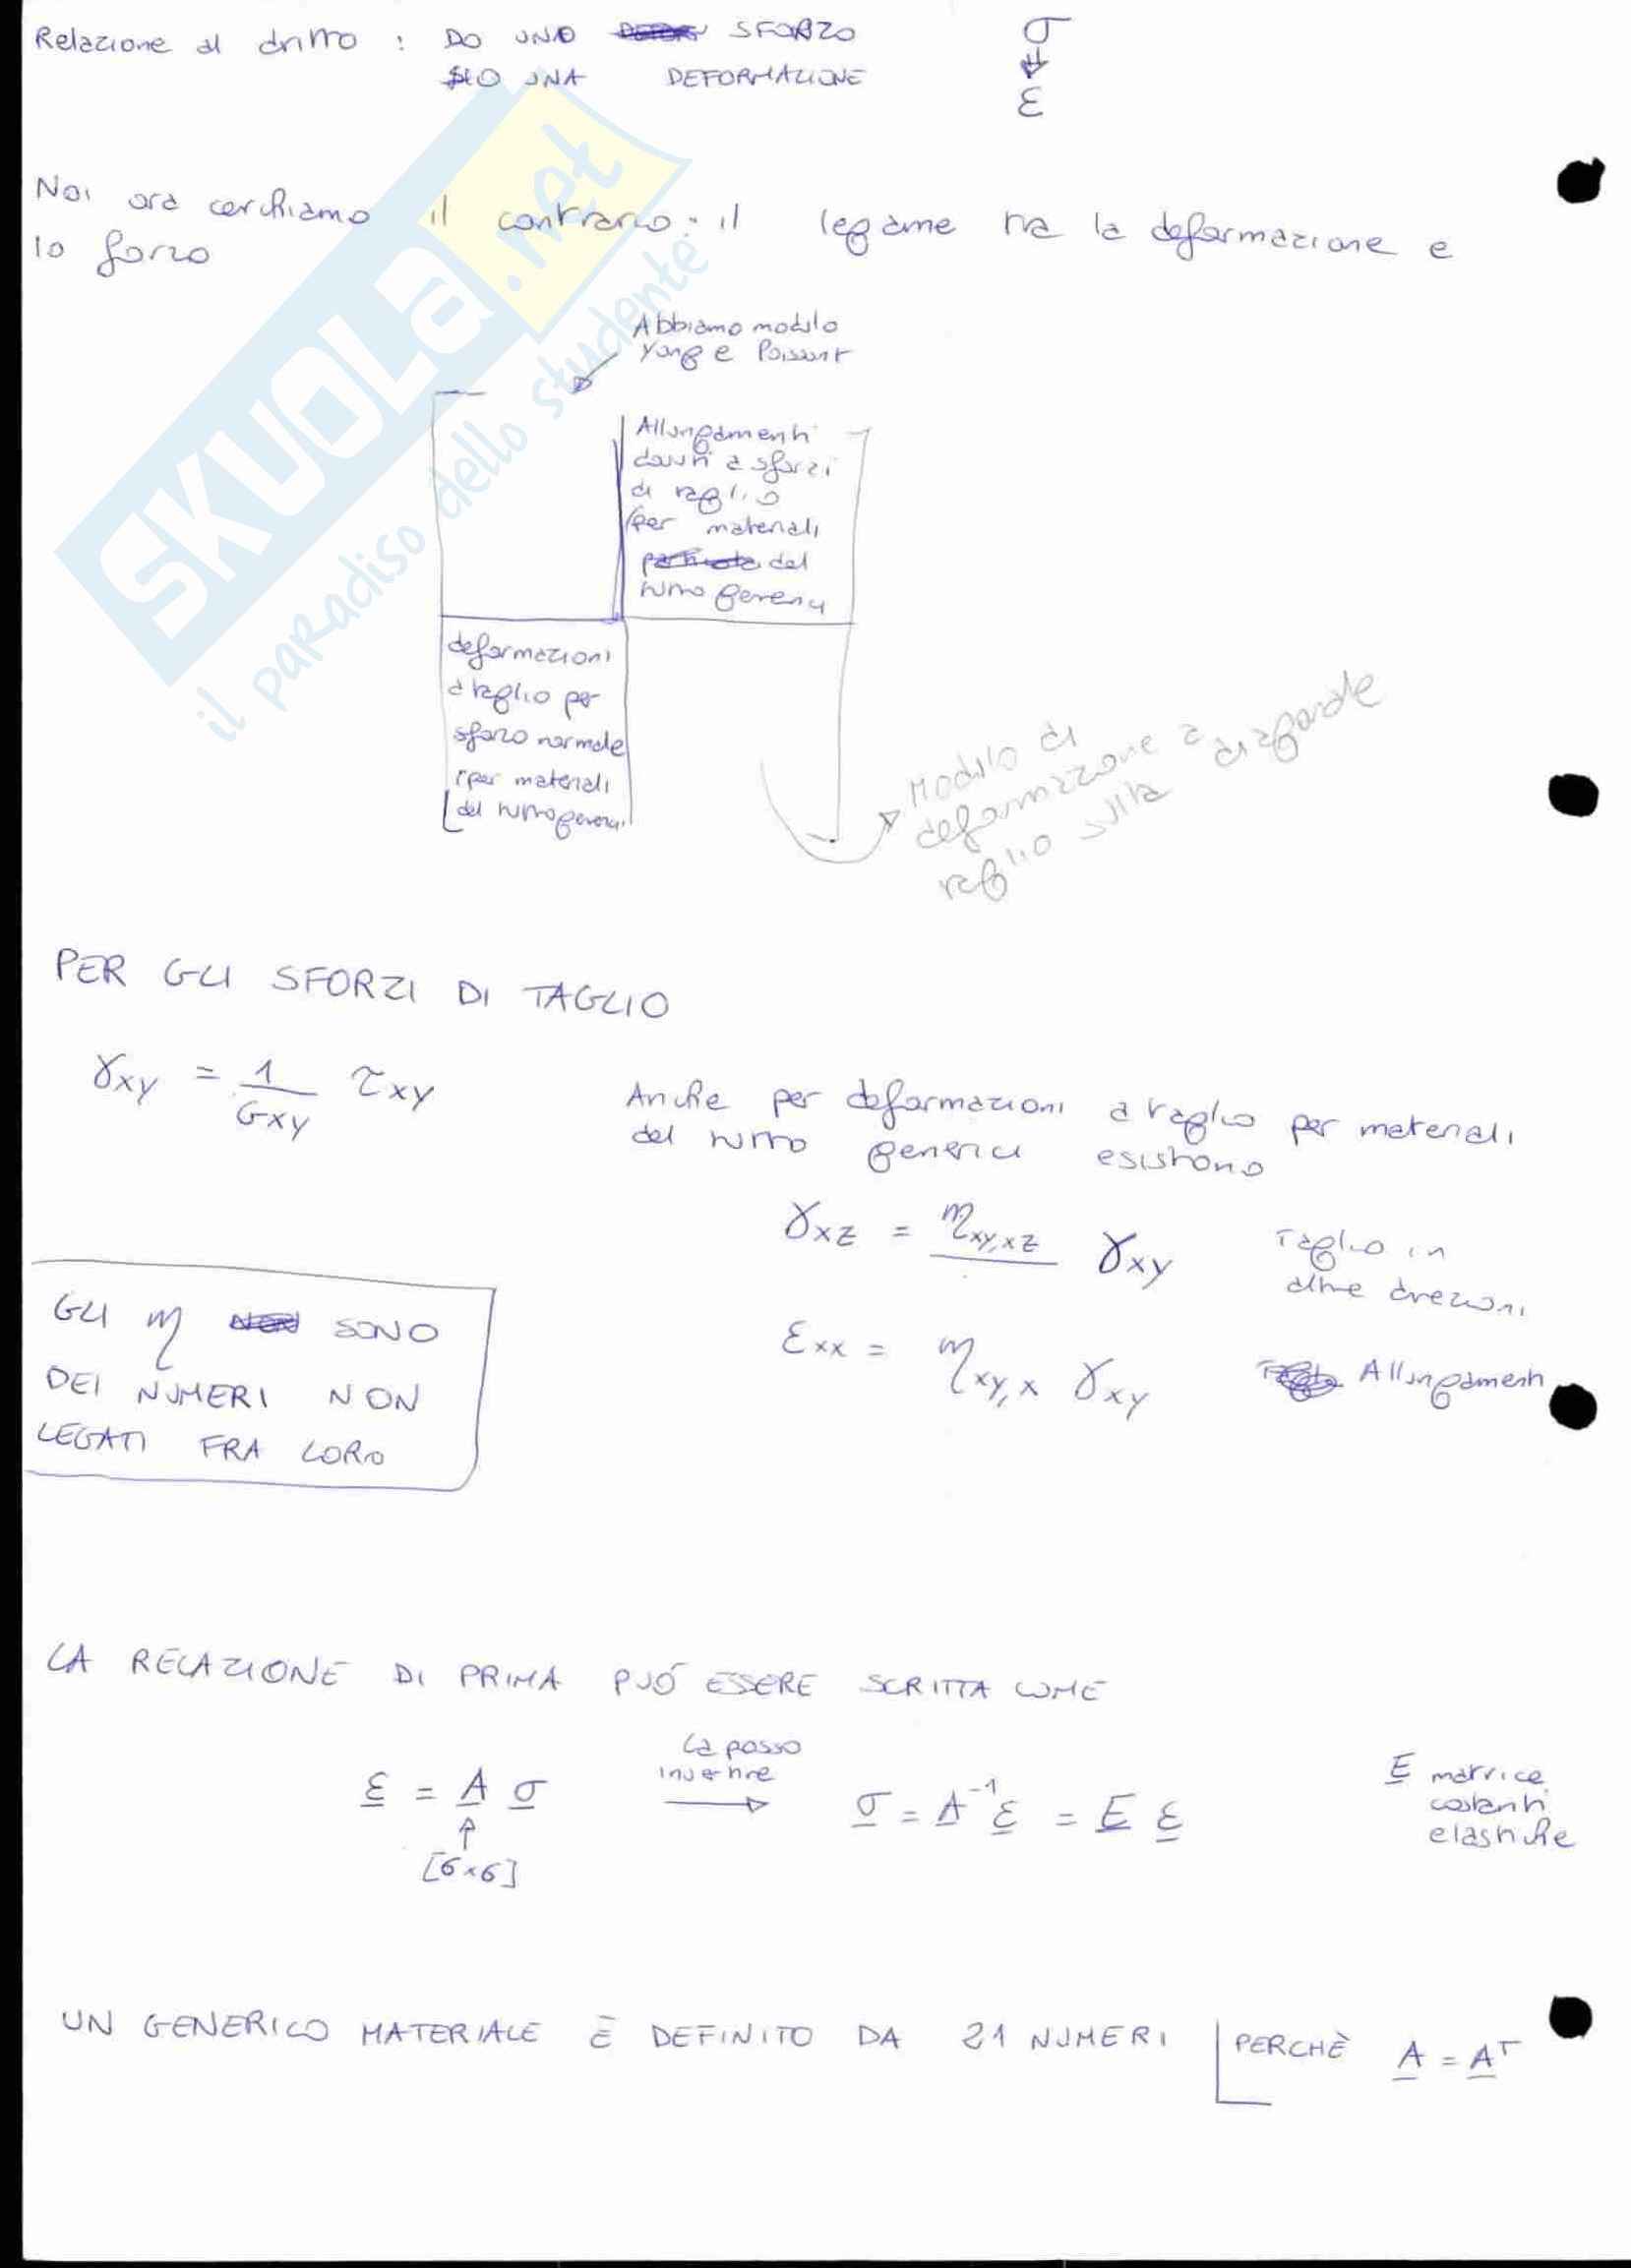 Relazione al dritto : DO UNO SFORZO
HO UNA DEFORMAZIONE
σ
↓
ε
Noi ora cerchiamo il contrario: il legame tra la deformazione e
lo forzo
SKUOLA.net
il paradiso dello studente
Abbiamo modulo
Yong e Poisson
Allungamenti
dovuti a sforzi
di taglio
(per materiali
del
tutto generici
deformazioni
a taglio per
sforzo normale
per materiali
del tutto generici
Modulo di
deformazione a
taglio sulla diagonale
PER GLI SFORZI DI TAGLIO
γxy = 1/Gxy τxy
Anche per deformazioni a taglio per materiali
del tutto generici esistono
γxz = ηxy,xz γxy Taglio in
altre direzioni
εxx = ηxy,x γxy Allungamenti
GLI η SONO
DEI NUMERI NON
LEGATI FRA LORO
LA RELAZIONE DI PRIMA PUÓ ESSERE SCRITTA COME
ε = A σ
[6×6]
La posso
invertire
→
σ = A⁻¹ ε = E ε
E matrice
costanti
elastiche
UN GENERICO MATERIALE È DEFINITO DA 21 NUMERI PERCHÈ A = Aᵀ